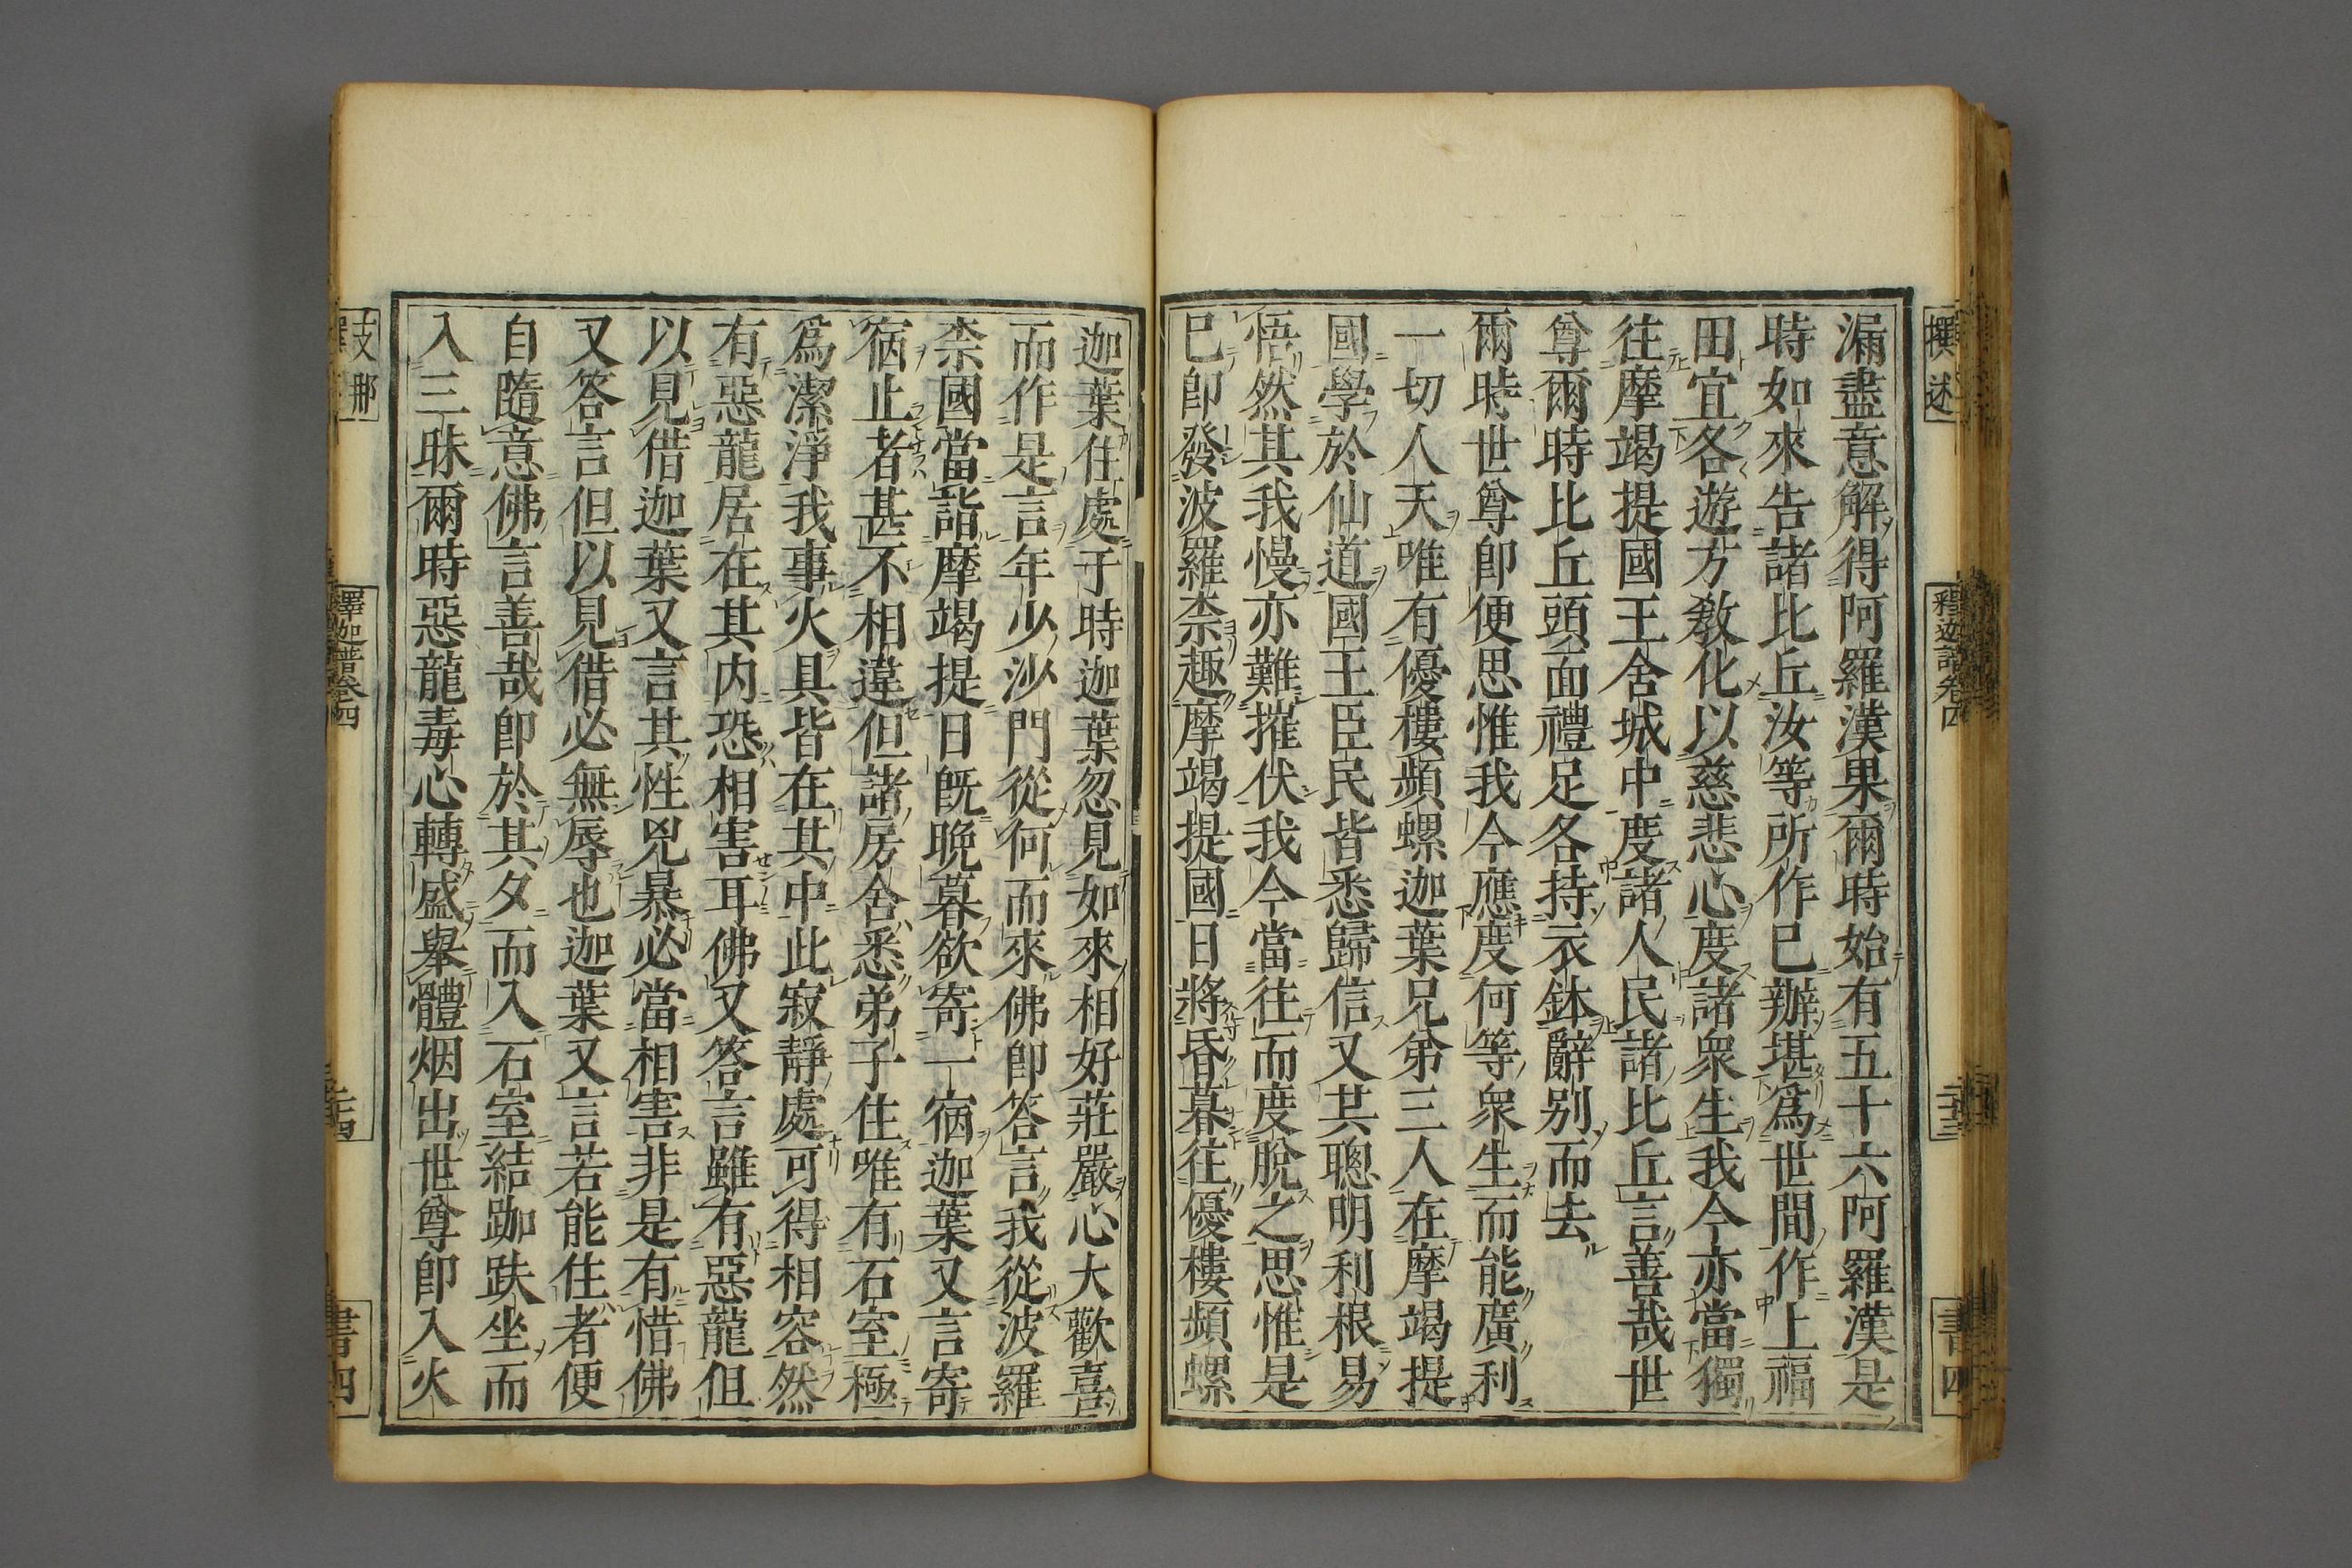 撰述
釋迦譜卷四
二十三
書四
漏盡意解得阿羅漢果爾時始有五十六阿羅漢是
時如來告諸比丘汝等所作已辦堪爲世間作上福
田宜各遊方教化以慈悲心度諸衆生我今亦當獨
往摩竭提國王舍城中度諸人民諸比丘言善哉世
尊爾時比丘頭面禮足各持衣鉢辭別而去
爾時世尊卽便思惟我今應度何等衆生而能廣利
一切人天唯有優樓頻螺迦葉兄弟三人在摩竭提
國學於仙道國王臣民皆悉歸信又其聰明利根易
悟然其我慢亦難摧伏我今當往而度脫之思惟是
已卽發波羅柰趣摩竭提國日將昏暮往優樓頻螺
迦葉住處于時迦葉忽見如來相好莊嚴心大歡喜
而作是言年少沙門從何而來佛卽答言我從波羅
柰國當詣摩竭提日旣晚暮欲寄一宿迦葉又言寄
宿止者甚不相違但諸房舍悉弟子住唯有石室極
爲潔淨我事火具皆在其中此寂靜處可得相容然
有惡龍居在其内恐相害耳佛又答言雖有惡龍但
以見借迦葉又言其性兇暴必當相害非是有惜佛
又答言但以見借必無辱也迦葉又言若能住者便
自隨意佛言善哉卽於其夕而入石室結跏趺坐而
入三昧爾時惡龍毒心轉盛舉體烟出世尊卽入火
支那
釋迦譜卷四
書四